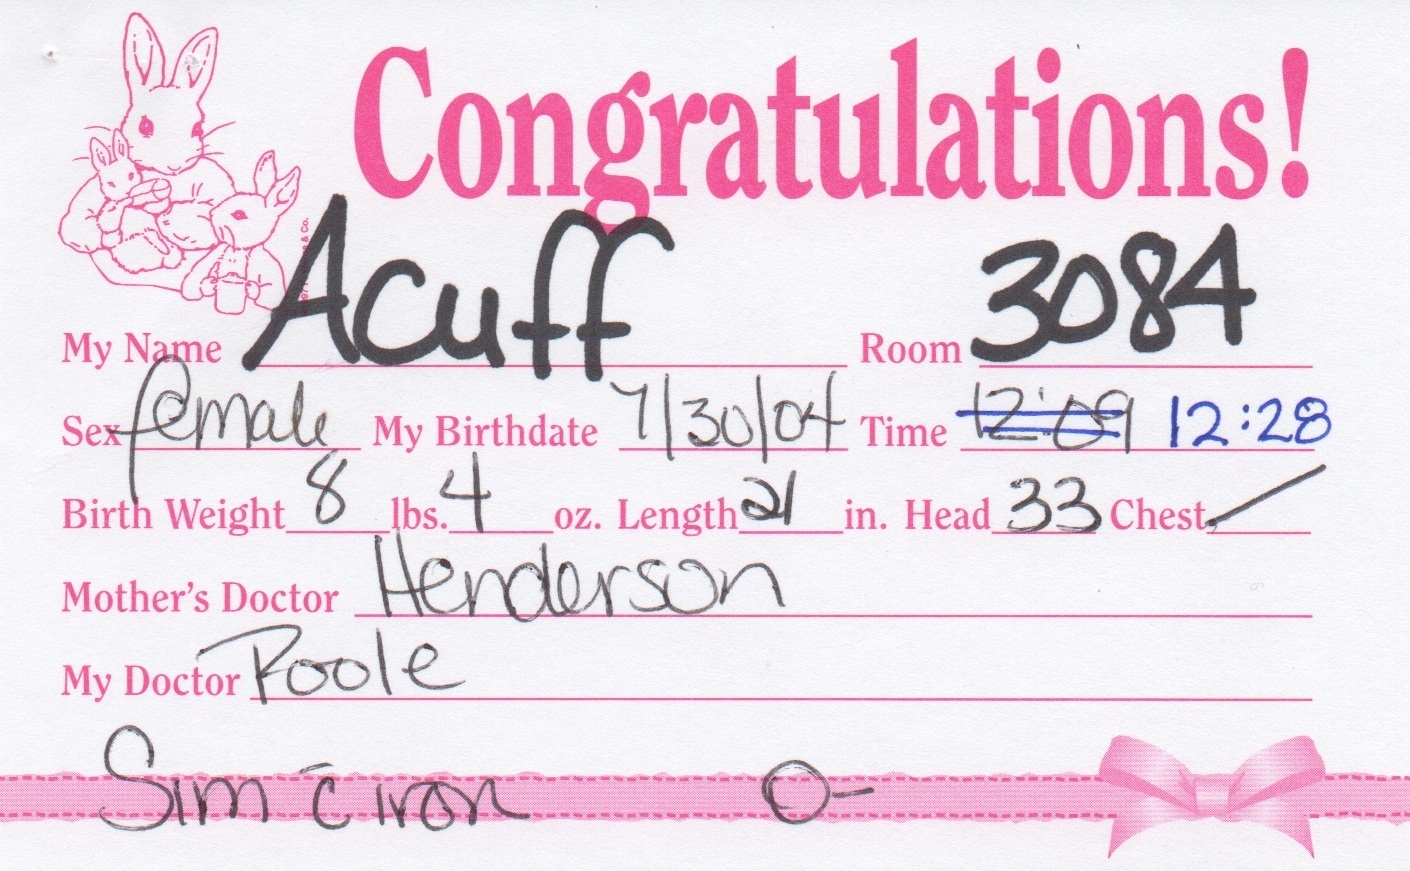 Congratulations!
My Name Acuff Room 3084
Sex female My Birthdate 7/30/04 Time 12:09 12:28
Birth Weight 8 lbs. 4 oz. Length 21 in. Head 33 Chest /
Mother's Doctor Henderson
My Doctor Poole
Sim c̄ iron O-